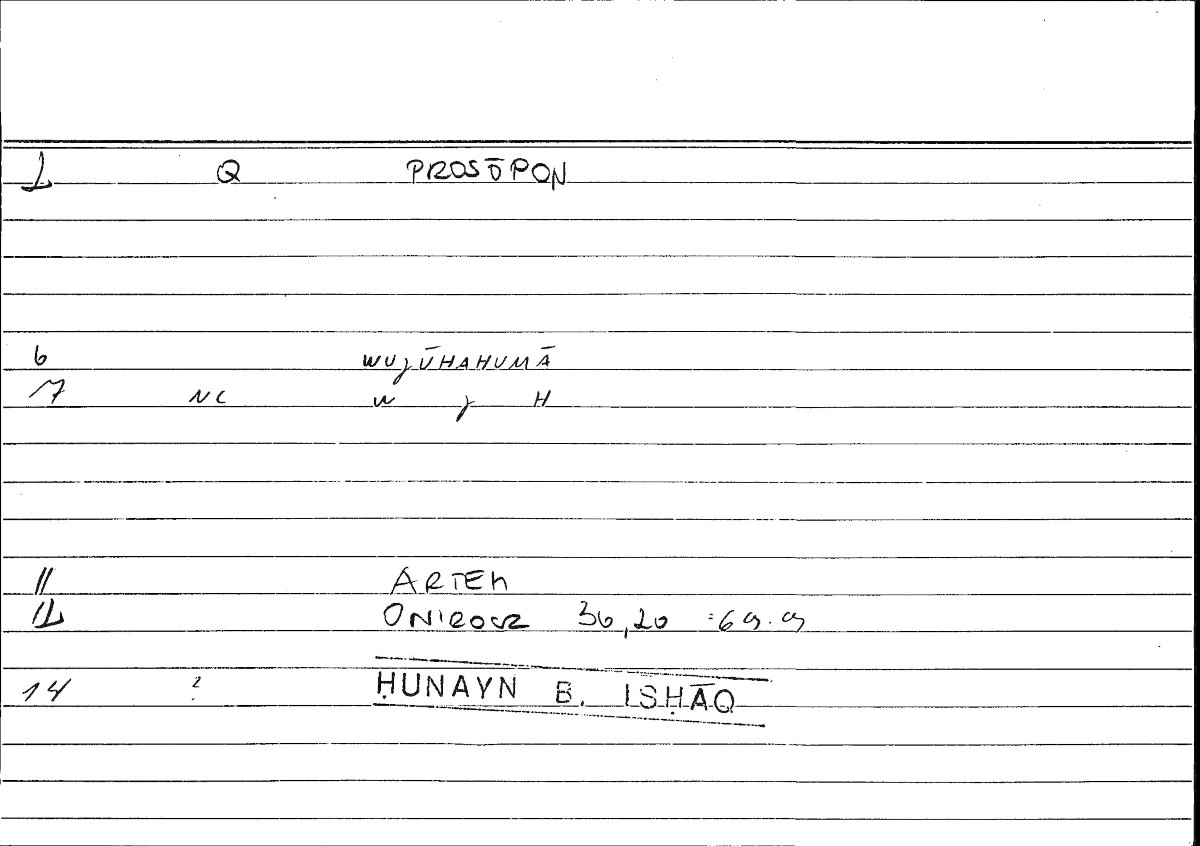 2 Q PROSŌPON
6 WUjŪHAHUMĀ
17 NC W j H
11 ARTEM
12 ONIROCR 36,20 = 69.9
14 ? ḤUNAYN B. ISḤĀQ